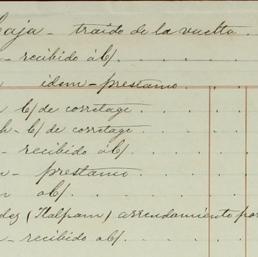 Caja - traido de la vuelta
- recibido á/c/
idem - prestamo
b/ de corretage
h - b/ de corretage
- recibido á/c/
- prestamo
á/c/
(Tlalpam) arrendamiento por
- recibido á/c/